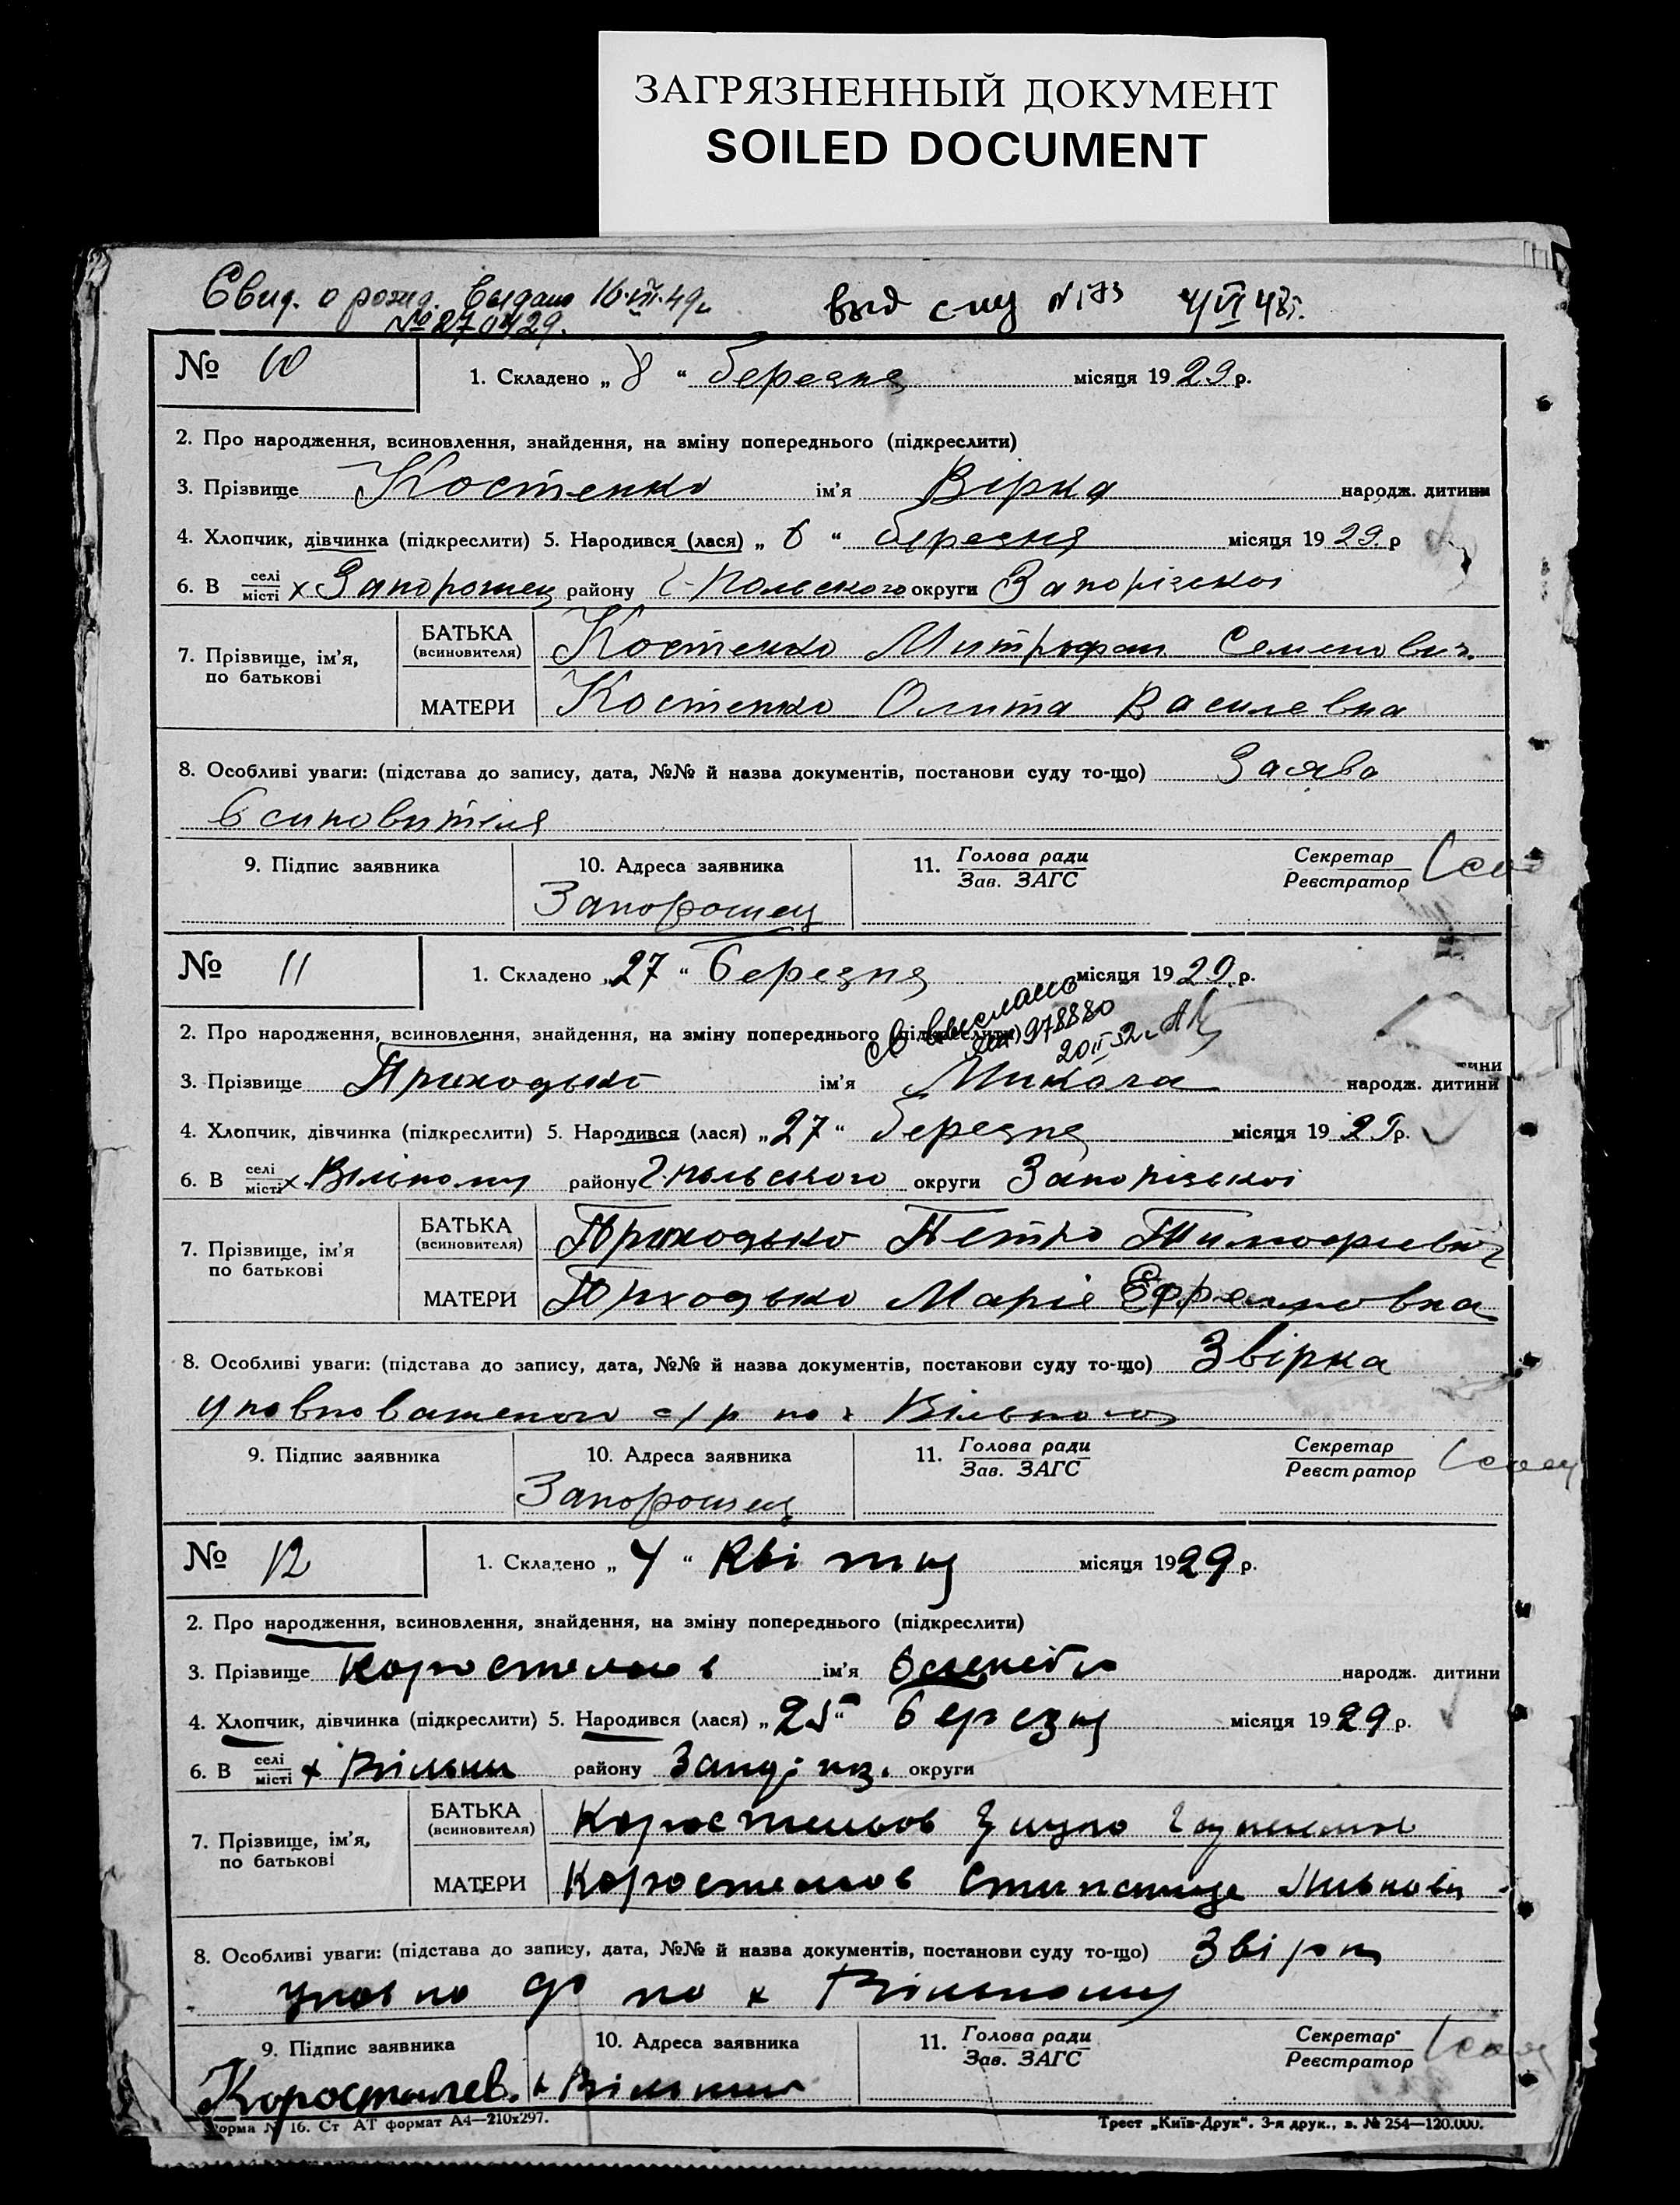 ЗАГРЯЗНЕННЫЙ ДОКУМЕНТ
SOILED DOCUMENT
Свид. о рожд. выдано 16.VIII.49г.
№ 270429.
выд 4/VI 48г.
№ 10
1. Складено „ 8 “ березня місяця 19 29 р.
2. Про народження, всиновлення, знайдення, на зміну попереднього (підкреслити)
3. Прізвище Костенко ім'я Вірка народж. дитини
4. Хлопчик, дівчинка (підкреслити) 5. Народився (лася) „ 6 “ березня місяця 19 29. р
6. В селі/місті х Запорожец району Г-Польского округи Запорізької
7. Прізвище, ім'я, по батькові
БАТЬКА (всиновителя) Костенко Митрофан Семенович
МАТЕРИ Костенко Василевна
8. Особливі уваги: (підстава до запису, дата, №№ й назва документів, постанови суду то-що) Заява
всиновителя
9. Підпис заявника 10. Адреса заявника 11. Голова ради/Зав. ЗАГС Секретар/Реєстратор
Запорожец
№ 11
1. Складено „ 27 “ Березня місяця 19 29. р.
св выслано
978880
20 II 52г.
2. Про народження, всиновлення, знайдення, на зміну попереднього (підкреслити)
3. Прізвище Приходько ім'я Микола народж. дитини
4. Хлопчик, дівчинка (підкреслити) 5. Народився (лася) „ 27 “ березня місяця 19 29 р.
6. В селі/місті х Вільному району Г.польского округи Запорізької
7. Прізвище, ім'я по батькові
БАТЬКА (всиновителя) Приходько Петро Тимофиевич
МАТЕРИ Приходько Маріє
8. Особливі уваги: (підстава до запису, дата, №№ й назва документів, постанови суду то-що) Звірка
уповноваженого с/р по х Вільному
9. Підпис заявника 10. Адреса заявника 11. Голова ради/Зав. ЗАГС Секретар/Реєстратор
Запорожец
№ 12
1. Складено „ 4 “ Квітня місяця 19 29 р.
2. Про народження, всиновлення, знайдення, на зміну попереднього (підкреслити)
3. Прізвище Коростельов ім'я народж. дитини
4. Хлопчик, дівчинка (підкреслити) 5. Народився (лася) „ 25 “ Березня місяця 19 29 р.
6. В селі/місті х Вільни району округи
7. Прізвище, ім'я, по батькові
БАТЬКА (всиновителя) Коростельов
МАТЕРИ Коростельов
8. Особливі уваги: (підстава до запису, дата, №№ й назва документів, постанови суду то-що) Звірка
по х Вільному
9. Підпис заявника 10. Адреса заявника 11. Голова ради/Зав. ЗАГС Секретар/Реєстратор
Коросталев. х
Форма № 16. Ст АТ формат А4—210х297.
Трест „Київ-Друк“. 3-я друк., з. № 254—120.000.